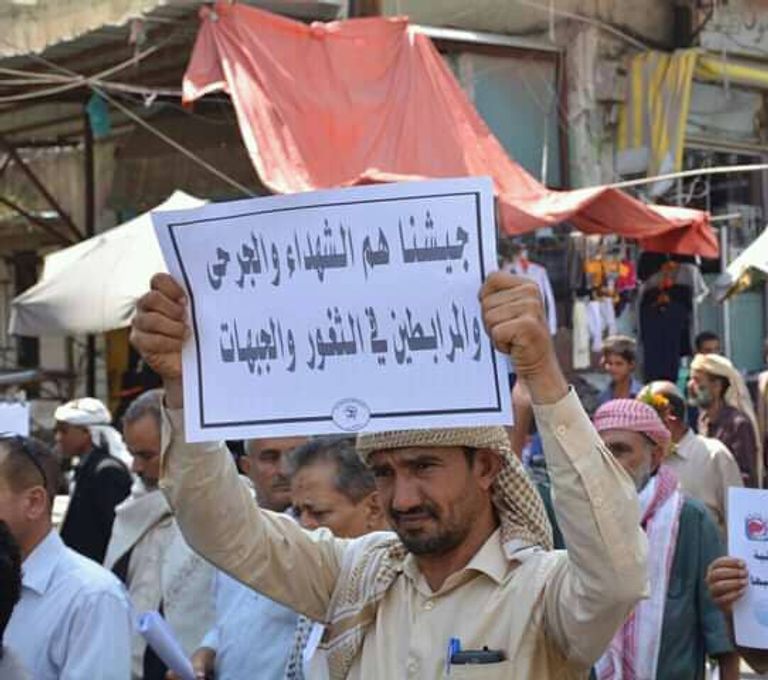 جيشنا هم الشهداء والجرحى
والمرابطين في الثغور والجبهات